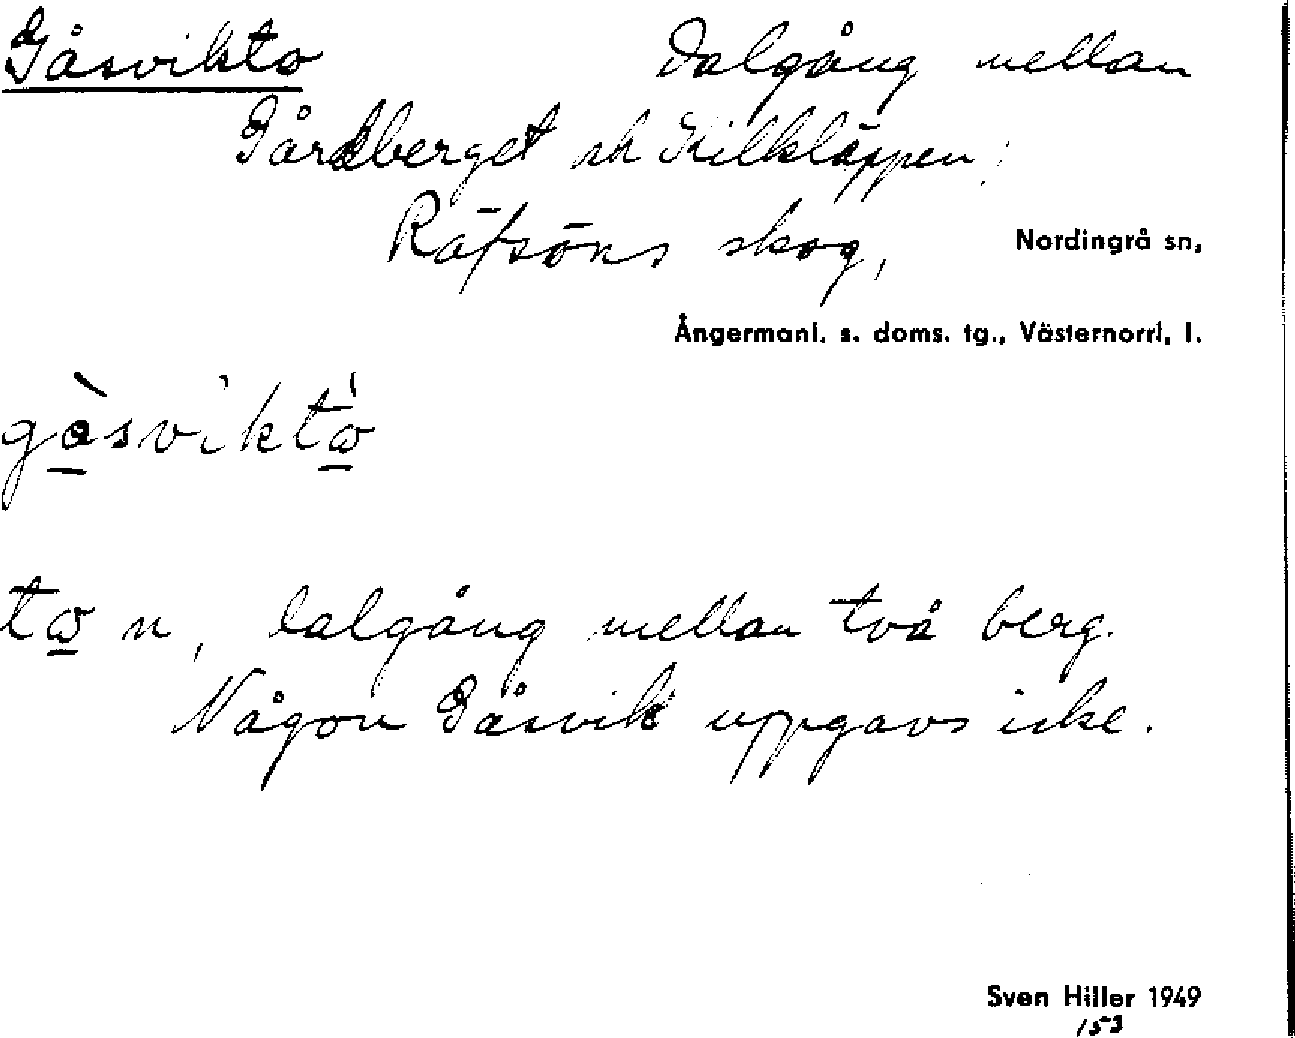 Gåsvikto Dalgång mellan
Gårdberget och Kilkläppen,
Räfsöns skog, Nordingrå sn,
Ångermanl. s. doms. tg., Västernorrl. l.
gåsviktω
tω n, dalgång mellan två berg.
Någon Gåsvik uppgavs icke.
Sven Hiller 1949
153